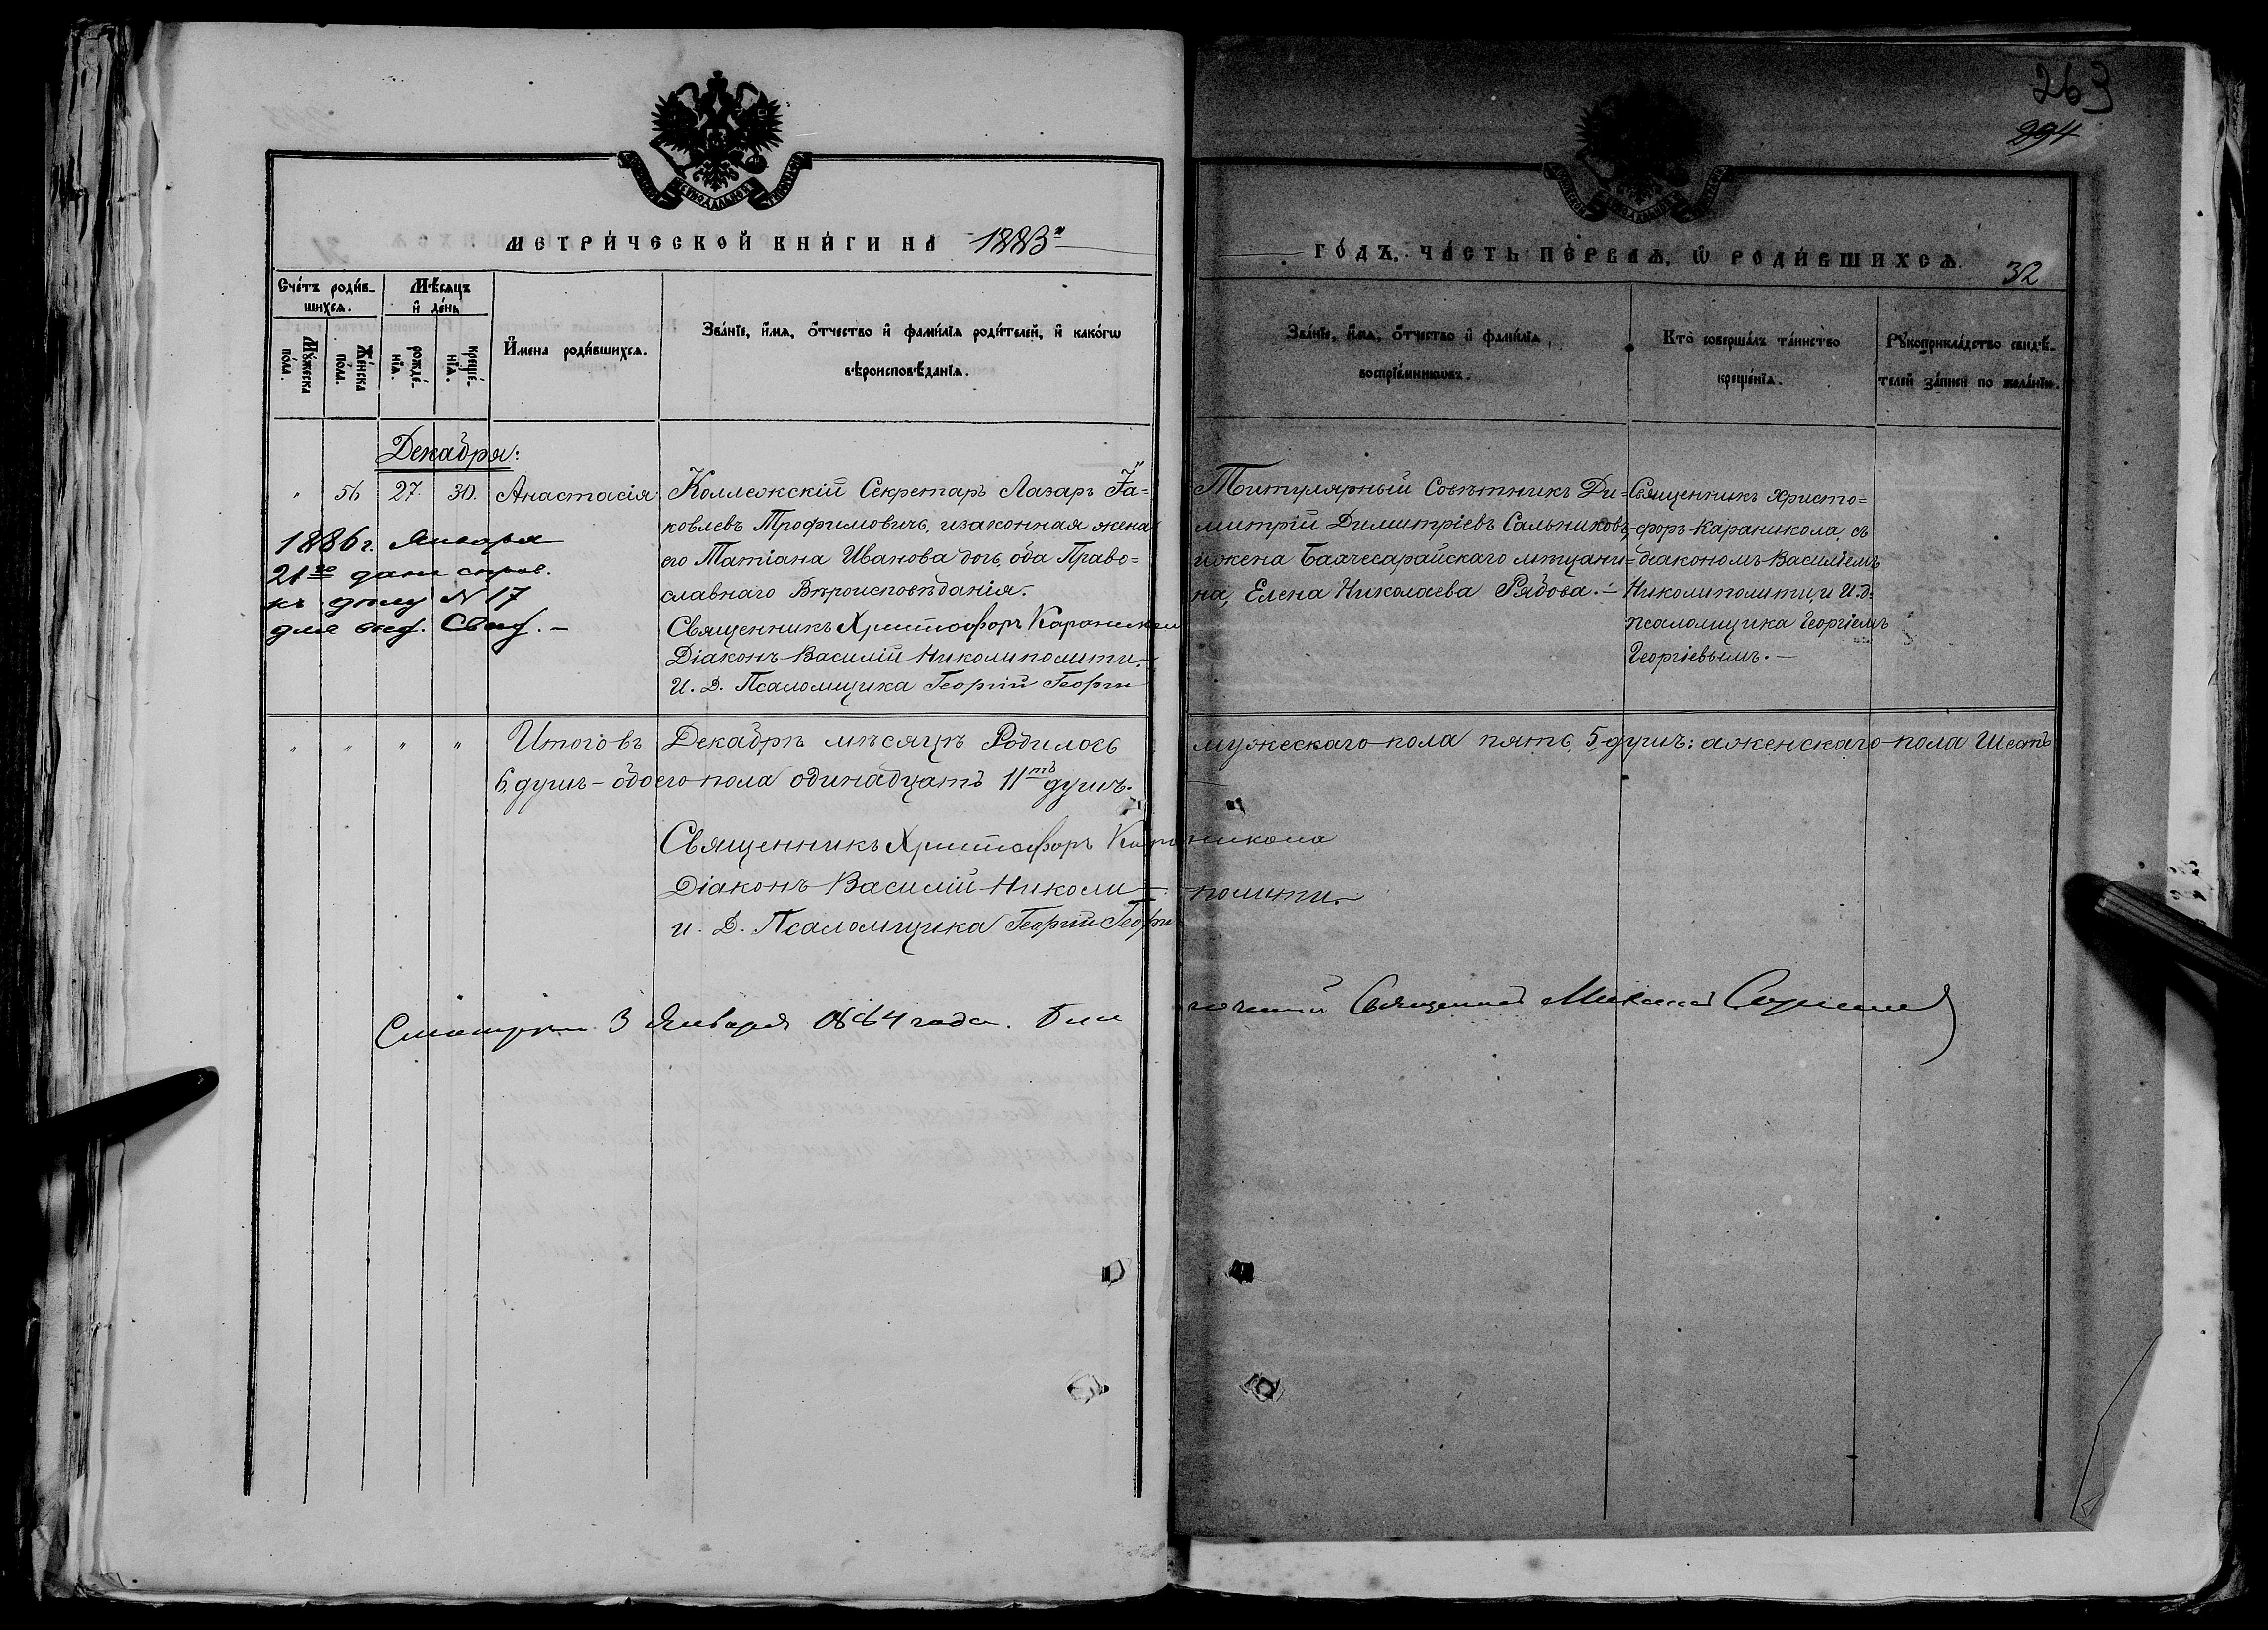 263
294
МЕТРИ́ЧЕСКОЙ КНИ́ГИ НА 1883й
ГО́ДЪ, ЧА́СТЬ ПЕ́РВАѦ, Ѡ РОДИ́ВШИХСѦ.
32
Сче́тъ роди́в-
шихсѧ.
Му́жеска по́ла.
Же́нска по́ла.
Мѣ́сяцъ
и̂ де́нь
рожде́-нїѧ.
креще́-нїѧ.
И҆мена роди́вшихсѧ.
Зва́нїе, и҆́мѧ, о҆́тчество и҆ фами́лїѧ роди́телей, и҆ како́гѡ
вѣроисповѣ́данїѧ.
Зва́нїе, и҆́мѧ, о҆́тчество и҆ фами́лїѧ
воспрїе́мникѡвъ.
Кто̀ соверша́лъ та́инство
креще́нїѧ.
Рꙋкоприкла́дство свидѣ́-
телей за́писи по жела́нїю.
Декабря:
" 56 27. 30. Анастасія
Коллежскій Секретарь Лазарь Ія=
ковлевъ Трофимовичъ, изаконная жена
его Татіана Иванова дочь, оба Право=
славнаго Вѣроисповѣданія.
Священникъ Христофоръ Караникола
Діаконъ Василій Николиполити.
И. Д. Псаломщика Георгій Георги
Титулярный Совѣтникъ Ди=
митрій Димитріевъ Сальниковъ,
ижена Бахчесарайскаго мѣщани=
на, Елена Николаева Рябова.—
Священникъ Христо=
форъ Караникола, съ
діакономъ Василіемъ
Николиполити, и И.Д.
псаломщика Георгіемъ
Георгіевымъ.—
1886 г. Января
21го дана справ.
къ дѣлу N 17
для выд. Свид.—
" " " " Итого въ Декабрѣ мѣсяцѣ Родилось мужескаго пола пять, 5, душъ: аженскаго пола Шесть
6, душъ — обоего пола одинадцать 11ть душъ.
Священникъ Христофоръ Караникола
Діаконъ Василій Николи—полити.
и. Д. Псаломщика Георгій Георги
3 Января 1884 года. Благочинный Священникъ Михаилъ